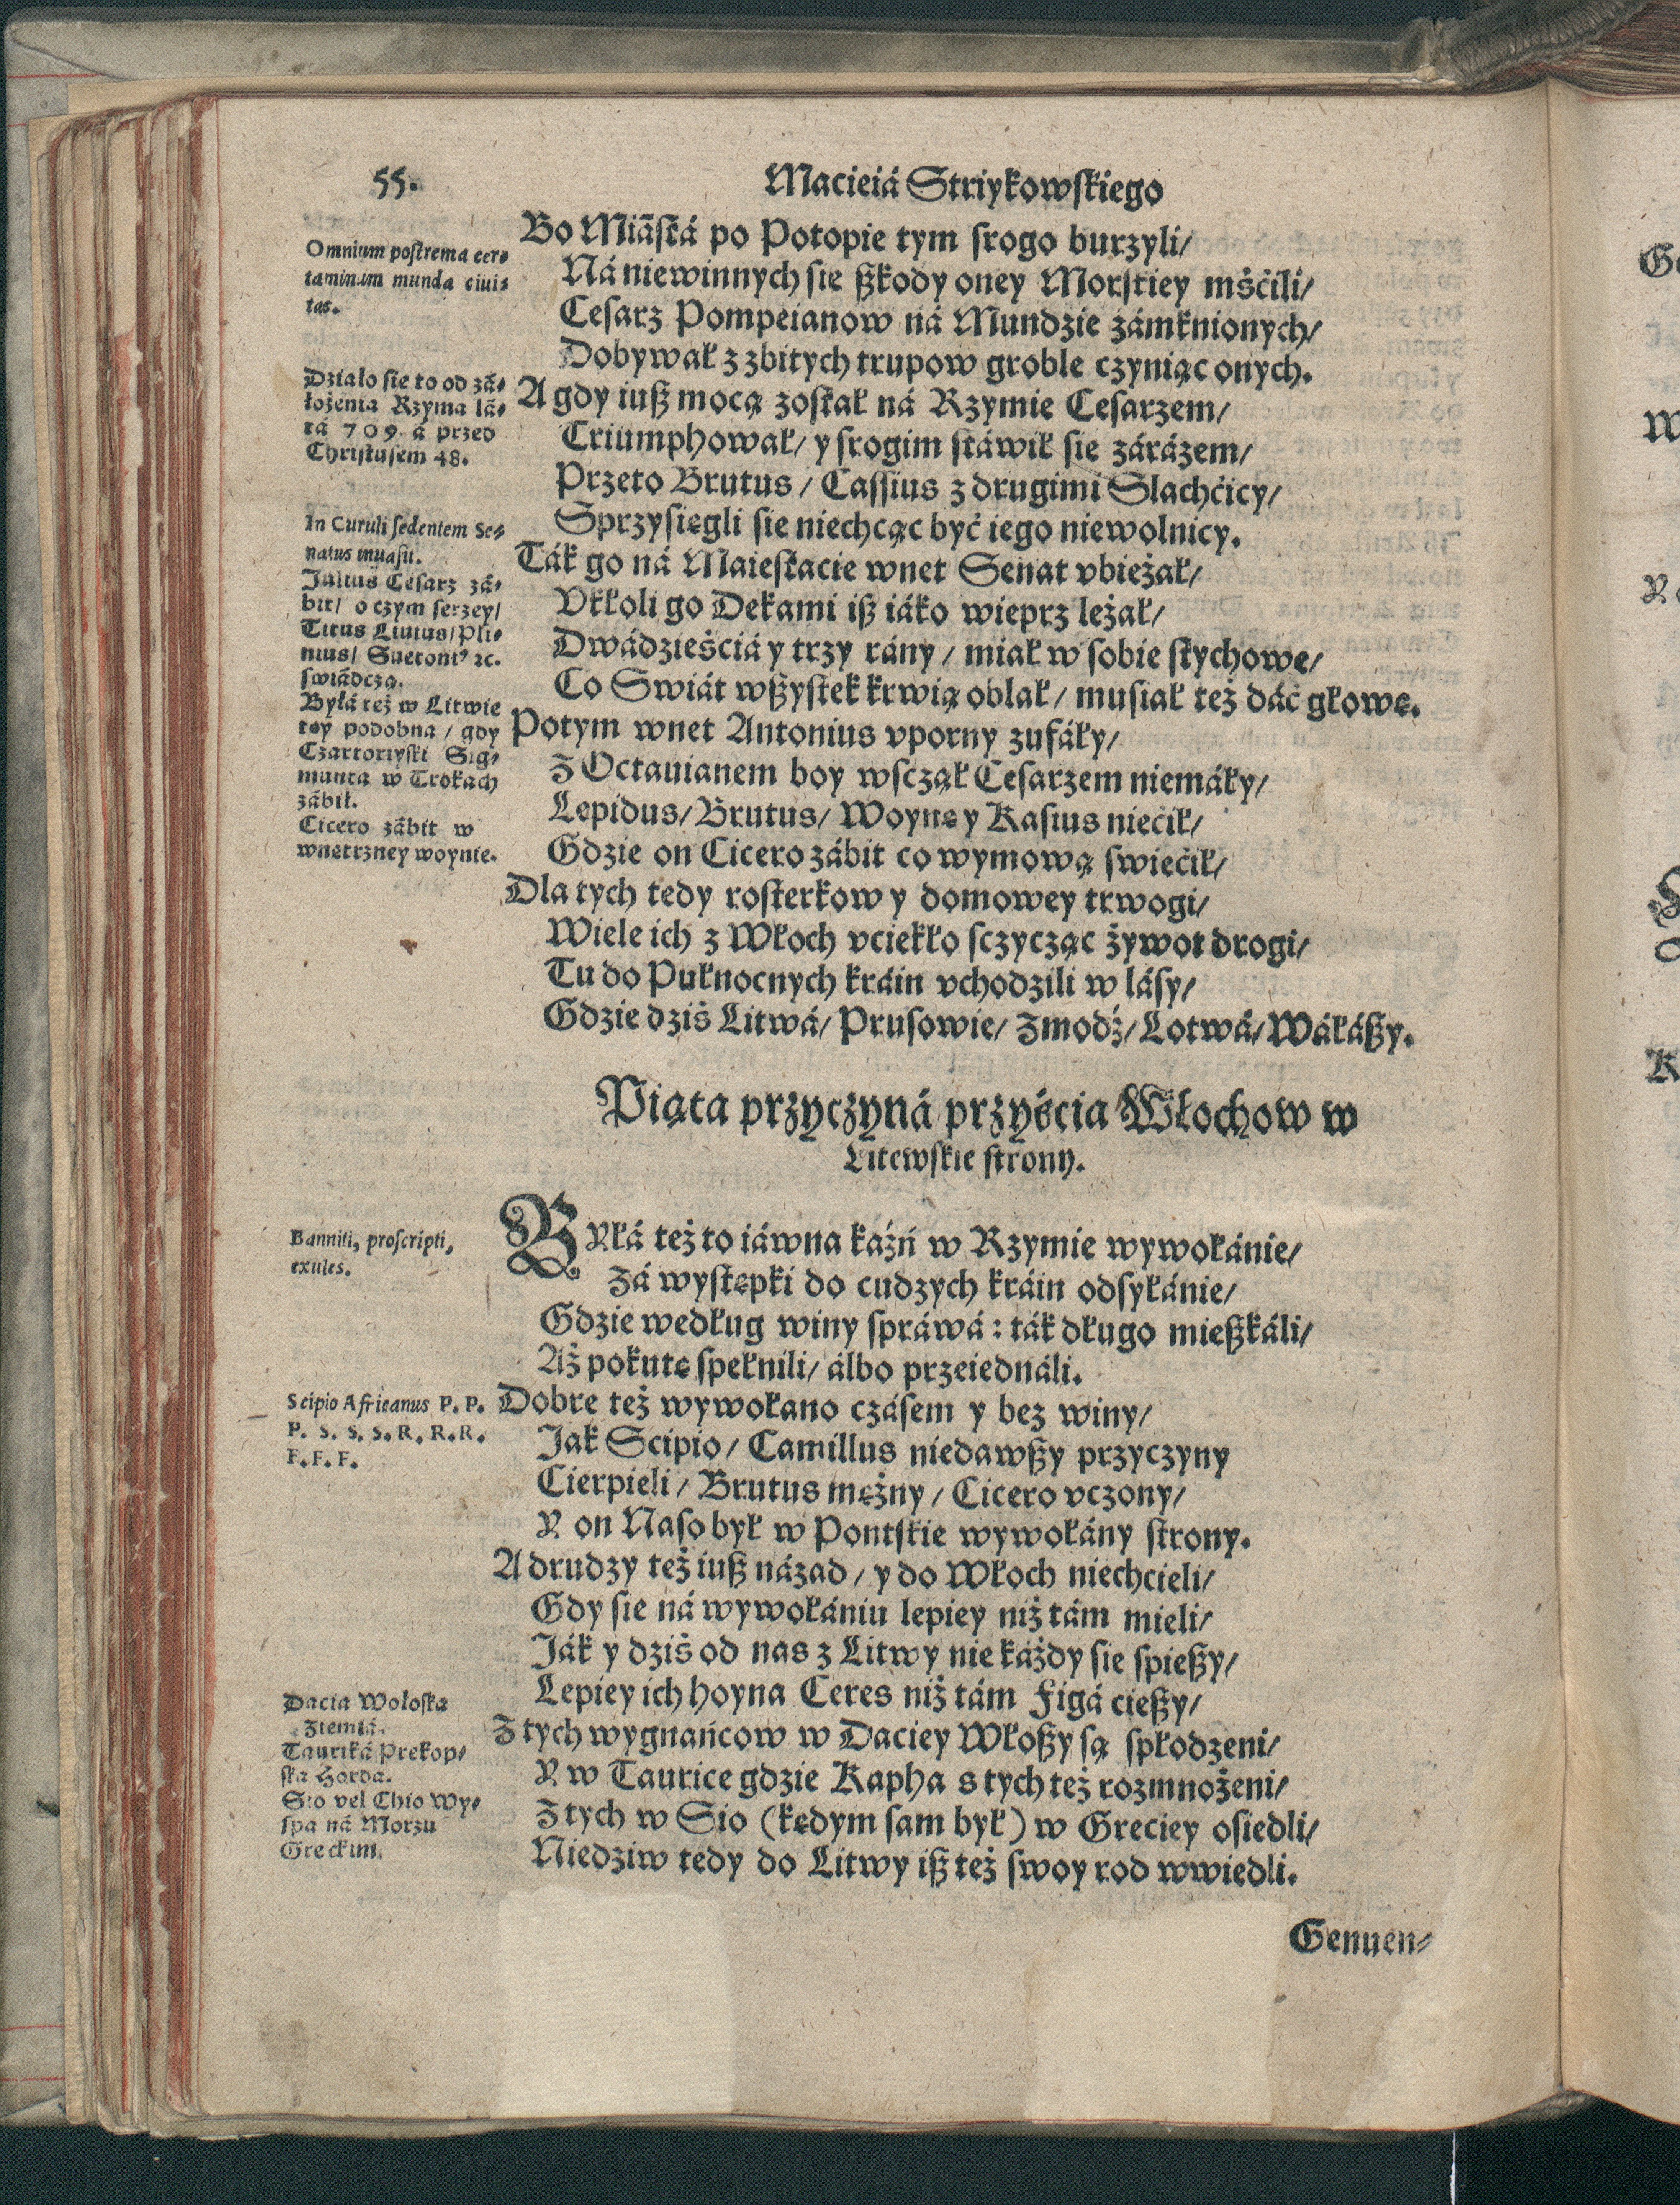 55.
Macieiá Striykowskiego
Bo Miástá po Potopie tym srogo burzyli/
Ná niewinnych sie ßkody oney Morskiey mśćili/
Cesarz Pompeianow ná Mundzie zámknionych/
Dobywał z zbitych trupow groble czyniąc onych.
A gdy iuß mocą został ná Rzymie Cesarzem/
Triumphował/ y srogim stáwił sie zárázem/
Przeto Brutus/ Cassius z drugimi Slachćicy/
Sprzysięgli sie niechcąc być iego niewolnicy.
Ták go ná Maiestacie wnet Senat vbieżał/
Vkłoli go Dekami iß iáko wieprz leżał/
Dwádzieśćiá y trzy rány/ miał w sobie stychowe/
Co Swiát wßystek krwią oblał/ musiał też dáć głowę.
Potym wnet Antonius vporny zufáły/
Z Octauianem boy wsczął Cesarzem niemáły/
Lepidus/ Brutus/ Woynę y Kasius niećił/
Gdzie on Cicero zábit co wymową swiećił/
Dla tych tedy rosterkow y domowey trwogi/
Wiele ich z Włoch vciekło sczycząc żywot drogi/
Tu do Pułnocnych kráin vchodzili w lásy/
Gdzie dziś Litwá/ Prusowie/ Zmodź/ Lotwá/ Wáłáßy.
Omnium postrema cer-
taminum munda ciui-
tas.
Działo sie to od zá-
łożenia Rzyma lá-
tá 709. á przed
Christusem 48.
In Curuli sedentem Se-
natus inuasit.
Julius Cesarz zá-
bit/ o czym serzey/
Titus Liuius/ Pli-
nius/ Suetoni⁹ ꝛc.
swiádczą.
Byłá też w Litwie
tey podobna/ gdy
Czartoriyski Sig-
munta w Trokach
zábił.
Cicero zábit w
wnetrzney woynie.
Piąta przyczyná przyścia Włochow w
Litewskie strony.
BYłá też to iáwna kaźń w Rzymie wywołánie/
Zá wystepki do cudzych kráin odsyłánie/
Gdzie według winy spráwá: ták długo mießkáli/
Aż pokutę spełnili/ álbo przeiednáli.
Dobre też wywołano czásem y bez winy/
Jak Scipio/ Camillus niedawßy przyczyny
Cierpieli/ Brutus mężny/ Cicero vczony/
Y on Naso był w Pontskie wywołány strony.
A drudzy też iuß názad/ y do Włoch niechcieli/
Gdy sie ná wywołániu lepiey niż tám mieli/
Ják y dziś od nas z Litwy nie káżdy sie spießy/
Lepiey ich hoyna Ceres niż tám Figá cießy/
Z tych wygnańcow w Daciey Włoßy są spłodzeni/
Y w Taurice gdzie Kapha s tych też rozmnożeni/
Z tych w Sio (kędym sam był) w Greciey osiedli/
Niedziw tedy do Litwy iß też swoy rod wwiedli.
Banniti, proscripti,
exules.
Scipio Africanus P. P.
P. S. S. S. R. R. R.
F. F. F.
Dacia Wołoska
Ziemiá.
Tauriká Prekop-
ska Horda.
Sio vel Chio Wy-
spa ná Morzu
Greckim.
Genuen-